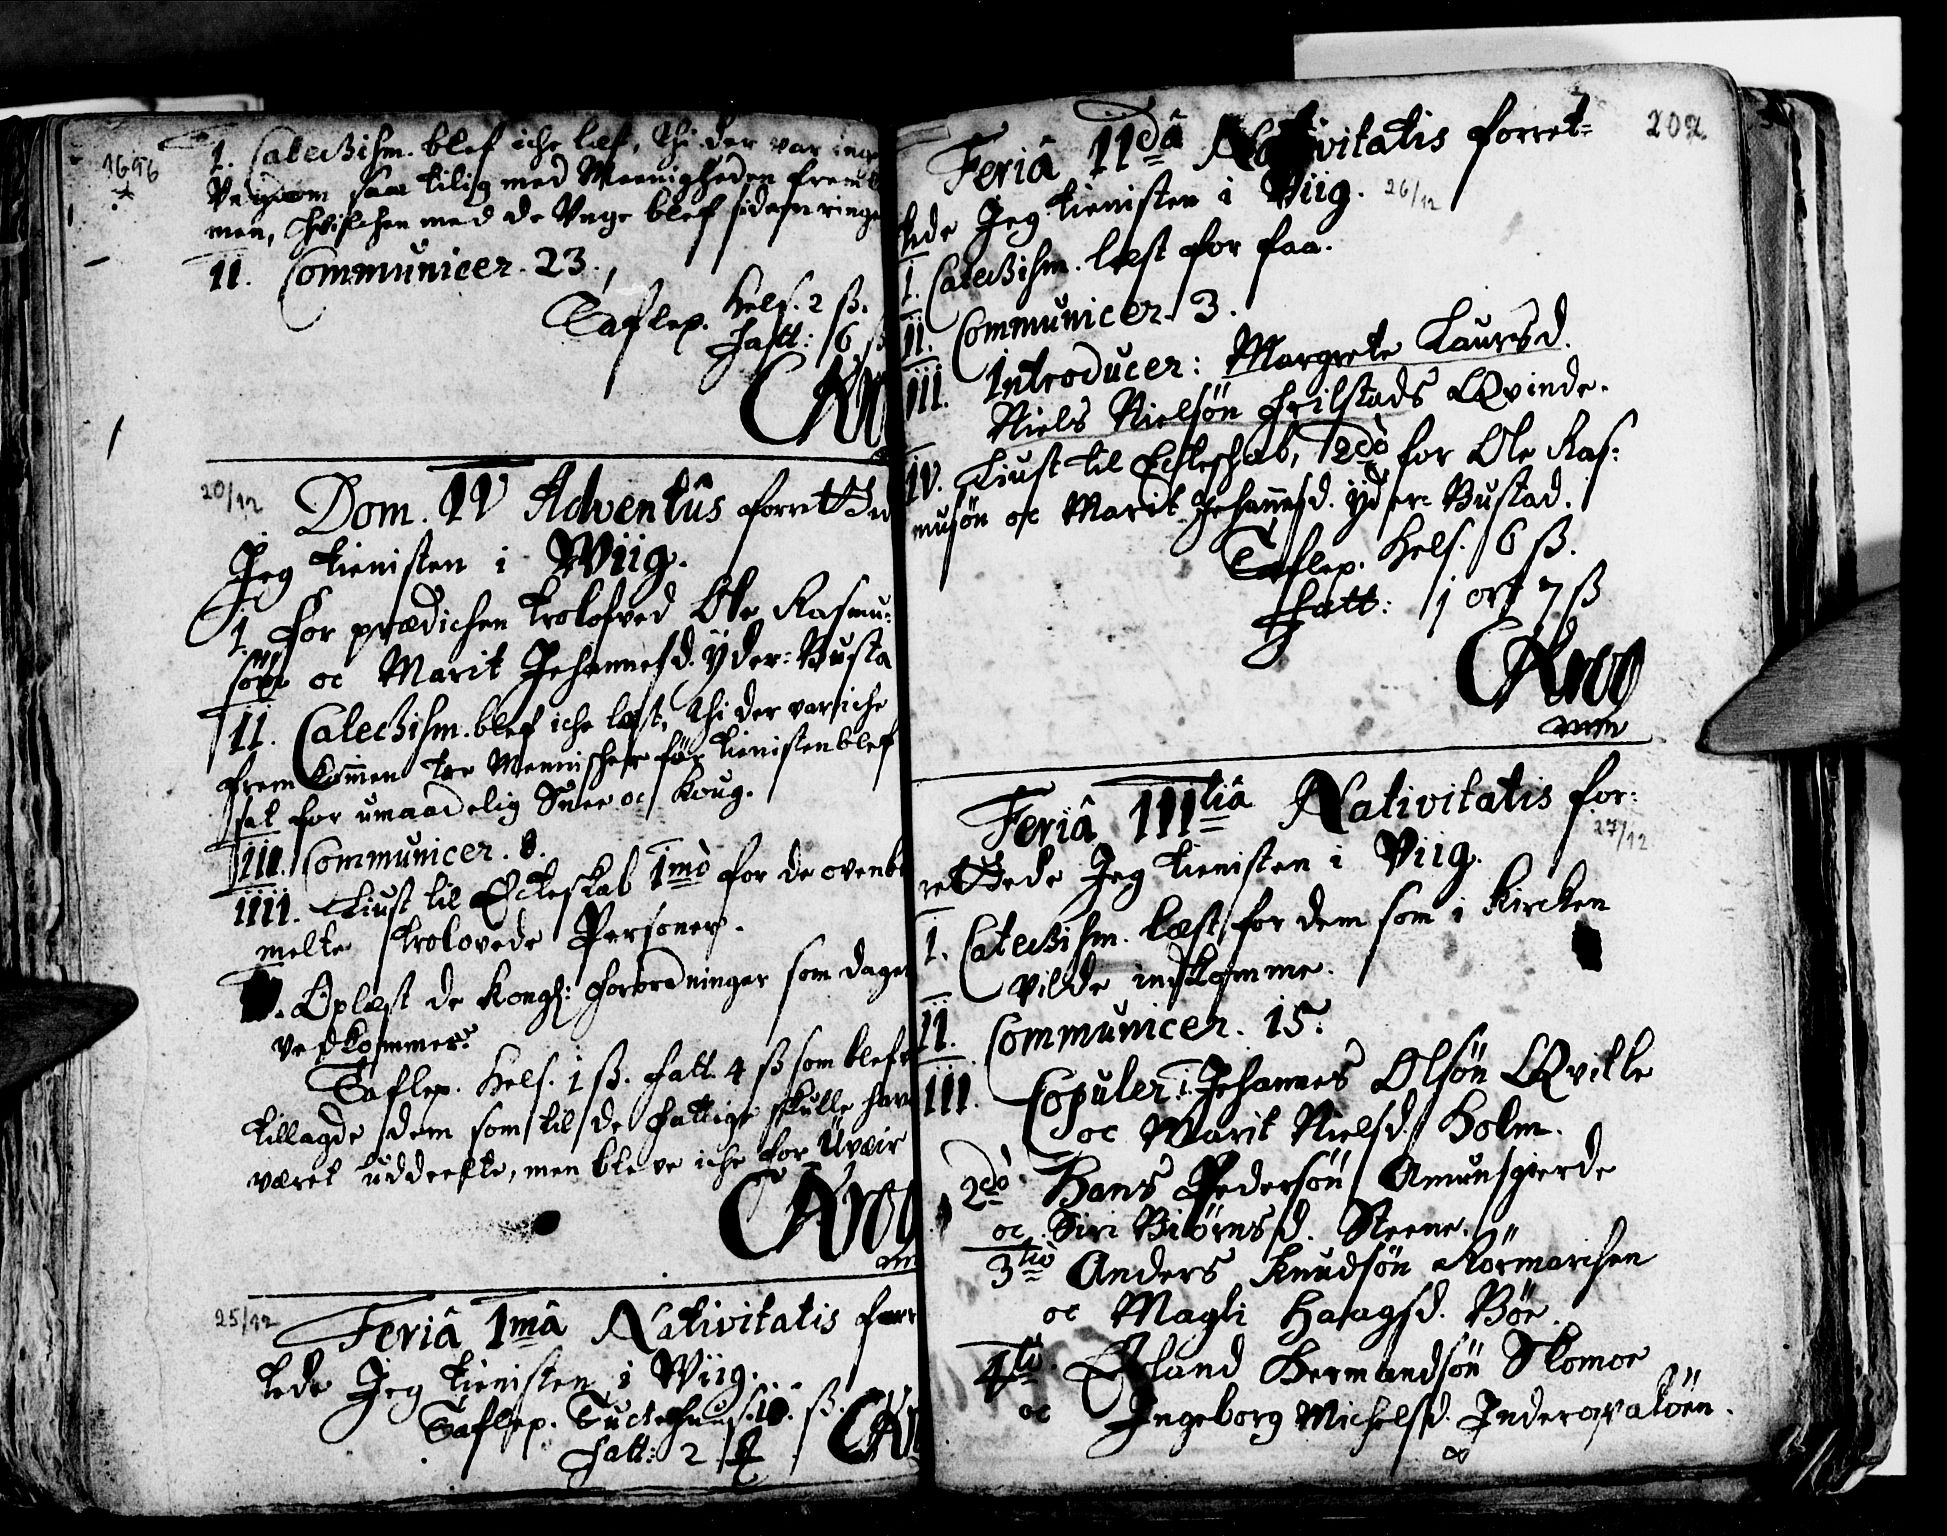 1696
I. Catechism. blef iche læst, thi der var inge
Vngdom saa tilig med Meenigheden frem k
men, Hvilchen med de Vnge blef sidafn ringe
II. Communicer. 23.
Taflep. Hels. 2 ß.
Fatt: 6 ß
20/12
Dom. IV Adventûs forretted
Jeg tienisten i Wiig.
I. For prædichen trolofved Ole Rasmu:
søn oc Marit Johannesd. Yder: Busta
II. Catechism. blef iche læst, thi der var iche
frem kommen tre Mennischer før tienisten blef
sat for umaadelig Snee oc Koug.
III. Communicer. 8.
IIII. Liust til Ecteskab 1mò for de ovenbe
melte trolovede Personer.
Oplæst de Kongl: Forordninger som dagen
vedkommer.
Taflep. Hels. 1 ß. Fatt. 4 ß som blef
tillagde dem som til de Fattige skulle hav
været uddeelte, men bleve iche for Uveir
25/12
Feriâ 1mâ Nativitatis forr
tede Jeg tienisten i Wiig.
Taflep. Tuctehuus. 10. ß.
Fatt: 2
202
Feriâ IIdâ Nativitatis forret=
tede Jeg tienisten i Viig. 26/12
I. Catechism. læst for faa.
II. Communicer. 3.
III. Introducer: Margrete Laursd.
Niels Nielsøn Frilstads Qvinde.
IV. Liust til Ecteskab, 2dò for Ole Ras:
musøn oc Marit Johannesd. Yder Bustad.
Taflep. Hels. 6 ß.
Fatt: 1 ort 7 ß
Feriâ IIItiâ Nativitatis for:
27/12
rettede Jeg tienisten i Viig.
I. Catechism. læst for dem som i Kircken
vilde indkomme.
II. Communicer. 15.
III. Copuler: Johannes Olsøn Qville
oc Marit Nielsd. Holm.
2dò Hans Pedersøn Amunsgierde
oc Siri Biørnsd. Steene.
3tiò Anders Knudsøn Rørmarchen
oc Magli Haagsd. Bøe.
4tò. Erland Hermandsøn Skomoe
oc Ingeborg Michelsd. Inderavatøen.